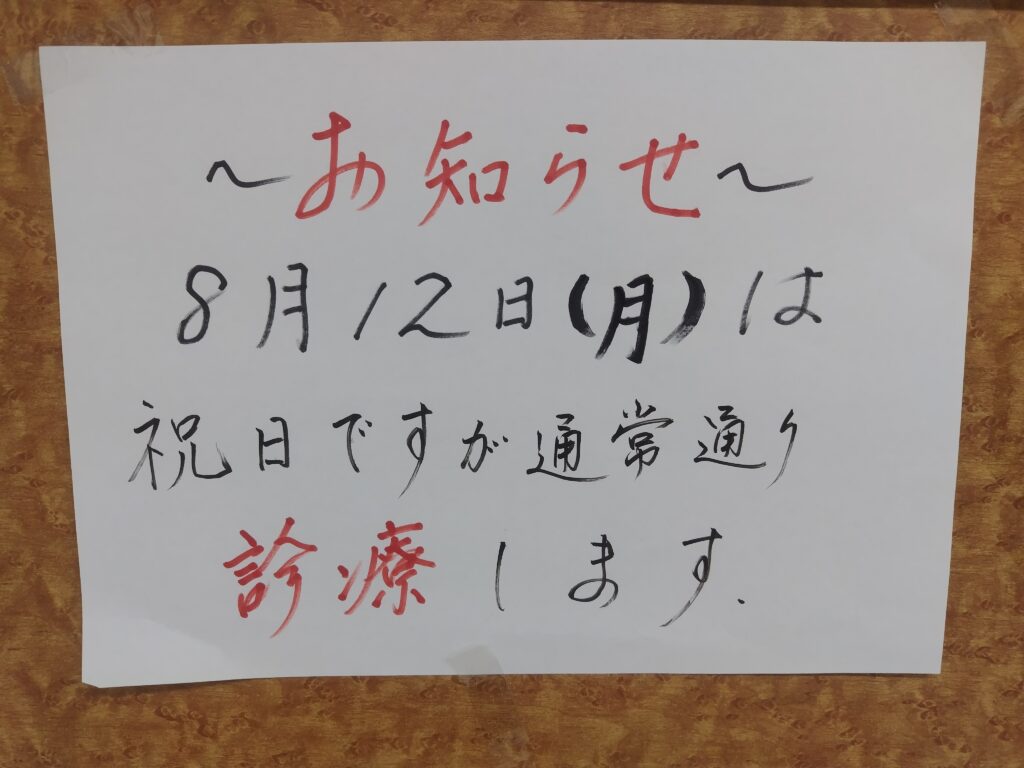 ～お知らせ～
8月12日(月)は
祝日ですが通常通り
診療します.